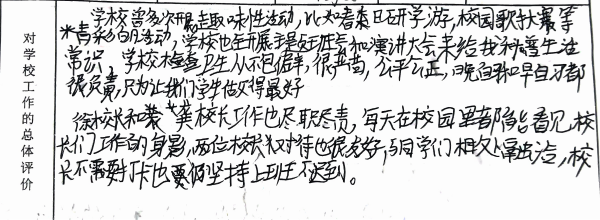 对学校工作的总体评价
学校曾多次开展趣味性活动,比如春来日研学游,校园歌手大赛等
精彩的活动,学校也在开展主题班会和演讲大会来给我们增生活
常识,学校检查卫生从不包庇,很严苛,公平公正,晚自和早自习都
很负责,只为让我们学生做得最好
徐校长和裴 龚校长工作也尽职尽责,每天在校园里都能看见校
长们工作的身影,两位校长对待也很友好,与同学们相处融洽,校
长不需要打卡也要保坚持上班不迟到。